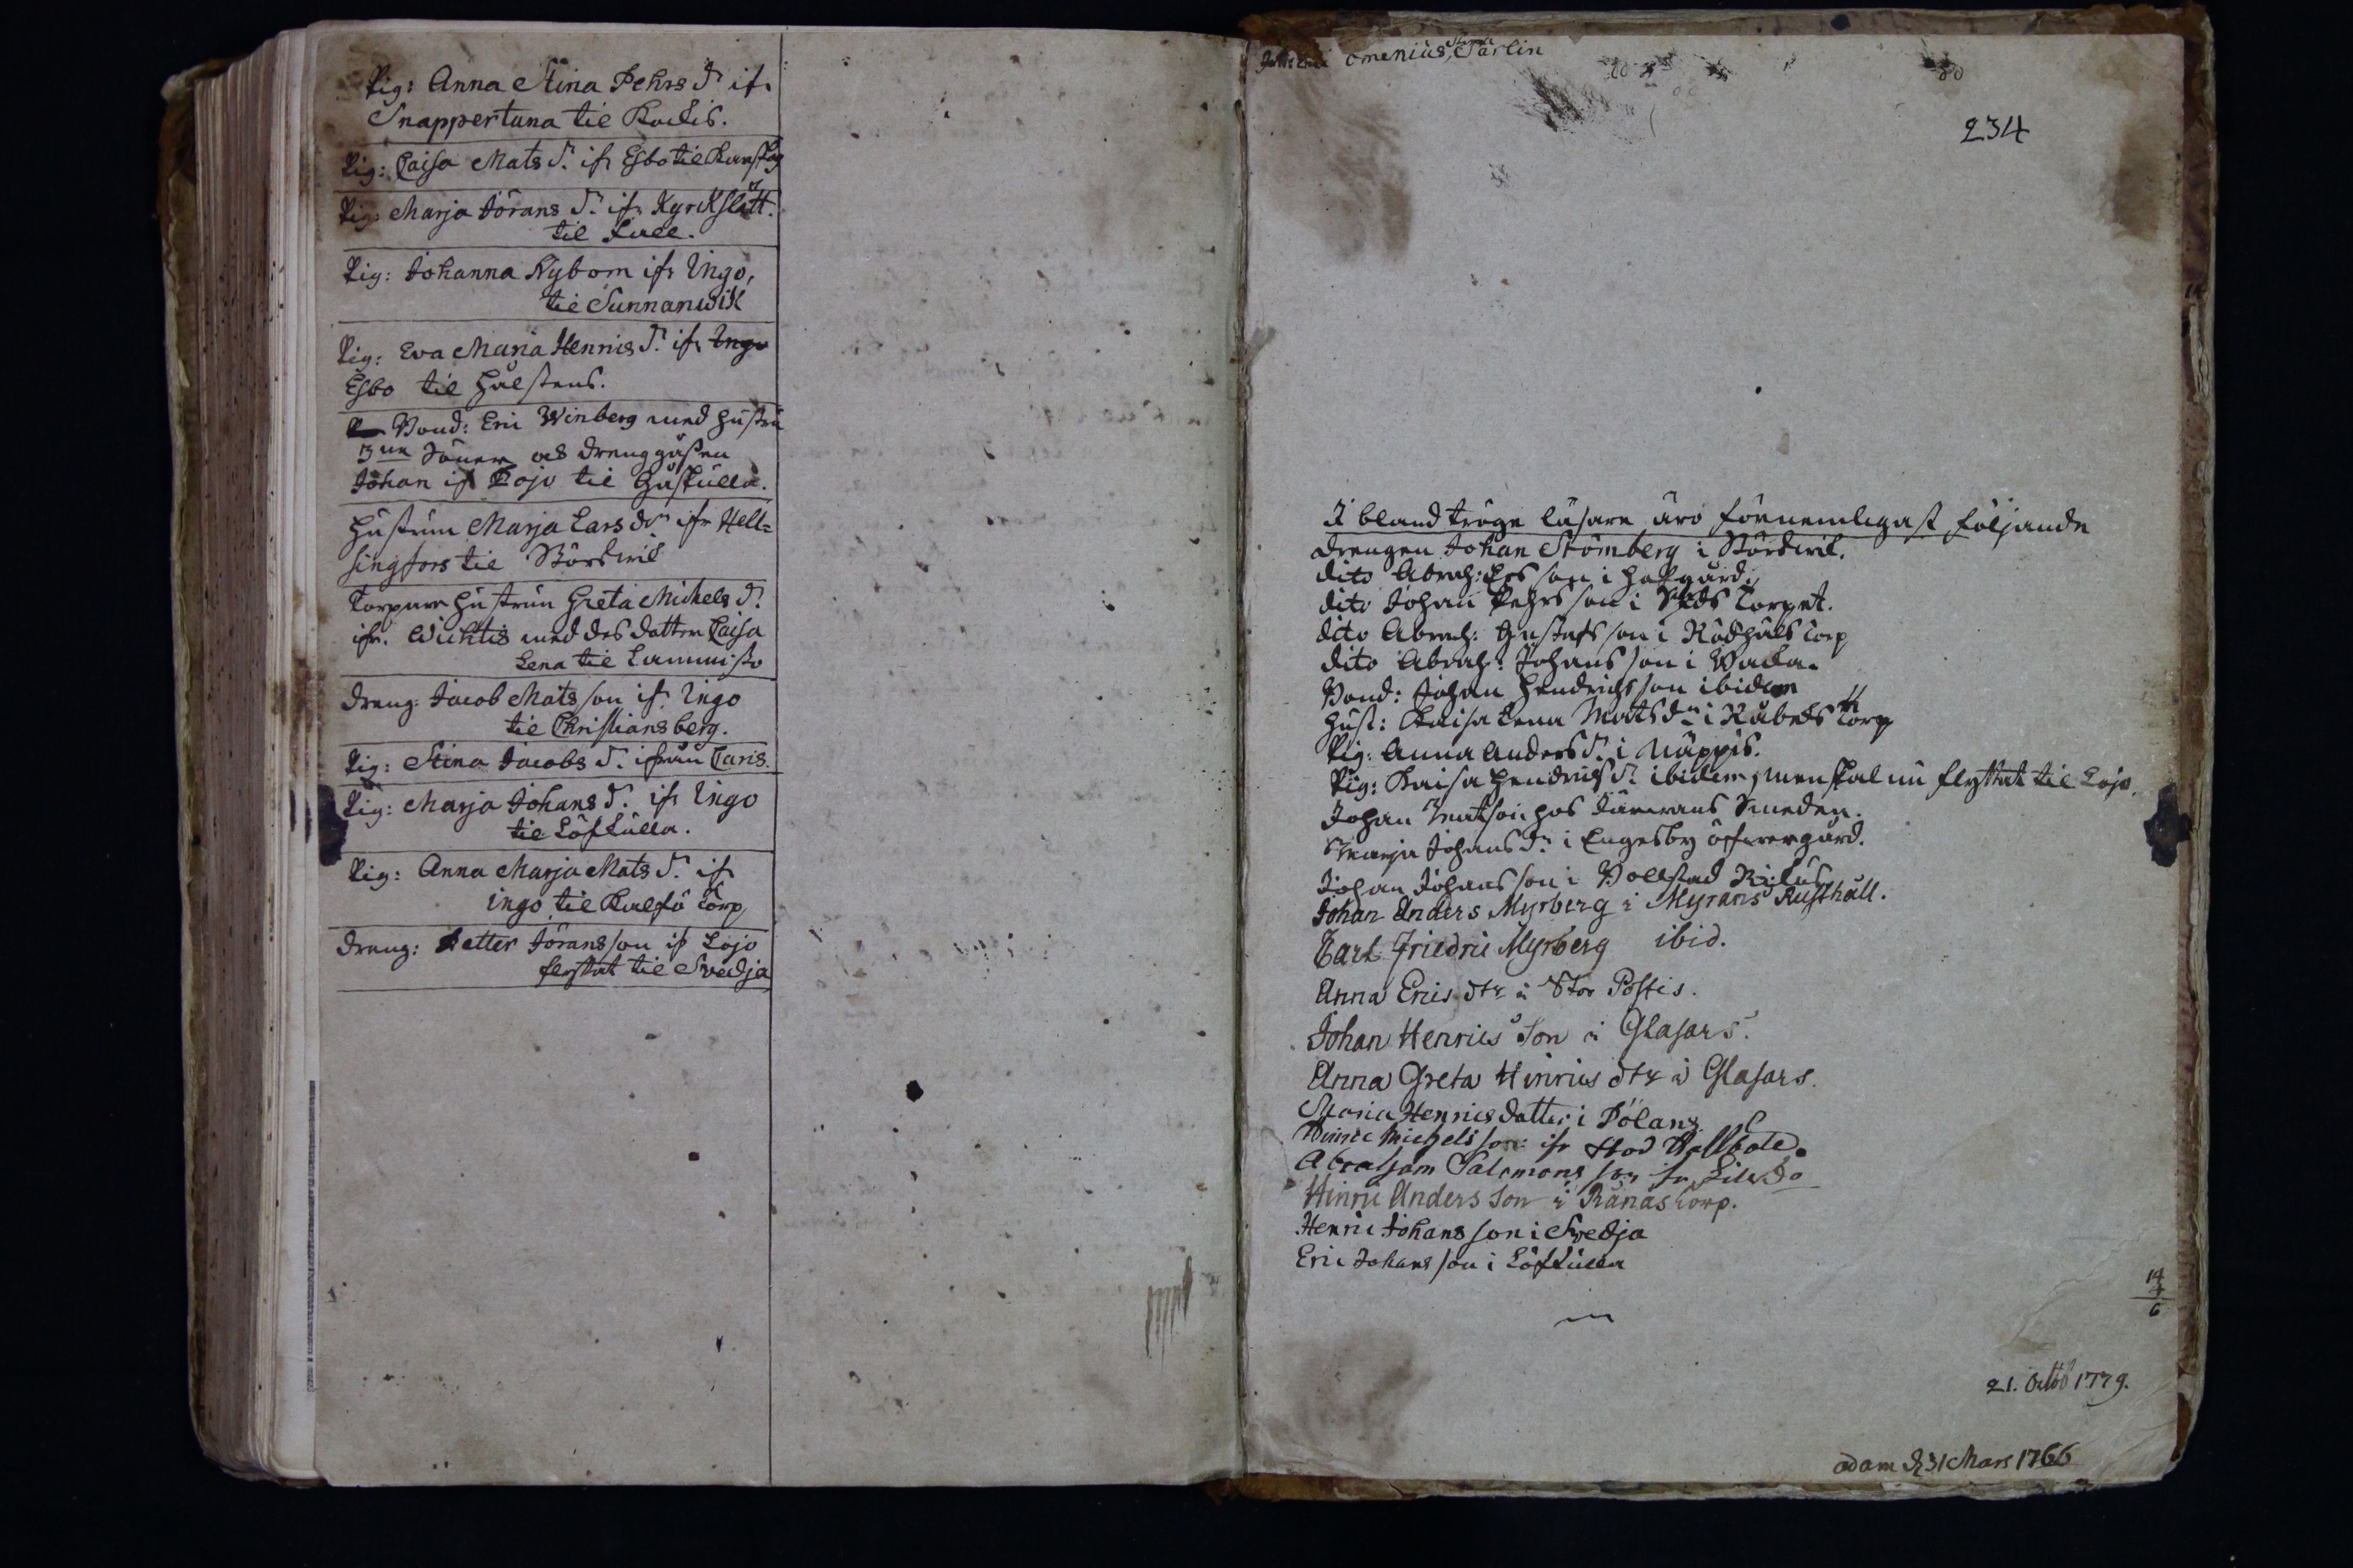 Pig: Anna Stina Pehrs dr. ifr
Snappertuna til Kockis.
Pig: Caisa Mats dr. ifr Esbo til Kanskog
Pig: Marja Jörans dr. ifr Kyrckslätt.
til Fall.
Pig: Johanna Nybom ifr Ingo,
til Sunnanwik
Pig: Eva Maria Henrics dr. ifr Ingo
Esbo til Hålstens.
Bond: Eric Winberg med hustru
3ne Söner ock drenggåssen
Johan ifr Lojo til Guskulla.
Hustrun Marja Lars dr ifr Hell=
singfors til Störswik
Torpare hustrun Greta Michels dr.
ifr. Wichtis med des dotter Caisa
Lena til
dreng: Jacob Mats son ifr. Ingo
til Christiansberg.
Pig: Stina Jacobs dr. ifrån Caris.
Pig: Marja Johans dr. ifr Ingo
til Löfkulla.
Pig: Anna Marja Mats dr. ifr
Ingo til Kalfö Torp
dreng: Petter Jörans son ifr Lojo
flyttat til Svedja
omenius, Sarlin
234
I bland tröge läsare äro förnemligast följande
drengen Johan Strömberg i Störswik.
dito Abrah: Ers son i Hofgård
dito Johan Pehrs son i torpet.
dito Abrah: Gustafs son i Rödhåls torp
dito Abrah: Johans son i Wacka.
Bond: Johan Hendrichs son ibidem
Hust: Kaisa Lena Mats dr i Råbecks torp
Pig: Anna Anders dr. i Näppis.
Pig: Kaisa Hendrichs dr. ibidem, men skal nu flyttat til Lojo.
Johan Matson hos Smeden.
Marja Johans dr. i Engesby öfwergård.
Johan Johans son i Bollstad
Johan Anders Myrberg i Myrans Rusthåll.
Carl Friedric Myrberg ibid.
Anna Erics dtr i Stor Postis.
Johan Henrics Son i Glasars.
Anna Greta Hinrics dtr i Glasars.
Maria Henrics dotter i Pölans
Hinric Michels son ifr Stor Wallbole.
Abraham Salomons son ifr Lill Do
Hinric Anders Son i Rånäs torp.
Henric Johans son i Svedja
Eric Johans son i Löfkulla
14
4
6
21. Octob 1779.
adam d 31 Mars 1766